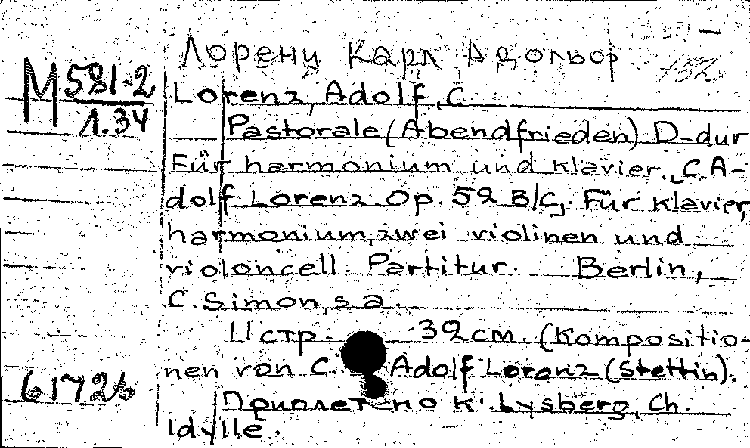 Лоренц Карл Адольф
М 581-2
1.34
Lorenz, Adolf, C.
Pastorale (Abendfrieden) D-dur
Für harmonium und Klavier. C. A-
dolf Lorenz Op. 59 B/C, Für Klavier,
harmonium, zwei violinen und
violoncell. Partitur. Berlin,
C. Simon, s.a.
11 стр. 32 см. (Kompositio-
nen von C. Adolf Loranz (Stettin).
61726
Приплетено к: Lysberg, Ch.
Idylle.